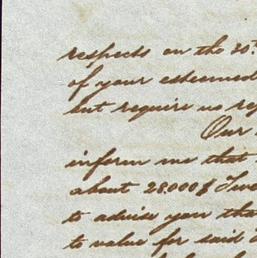 respects on the 30th
of your esteemed
but require no
Our
inform me that
about 28.000$
to advise you that
to value for said